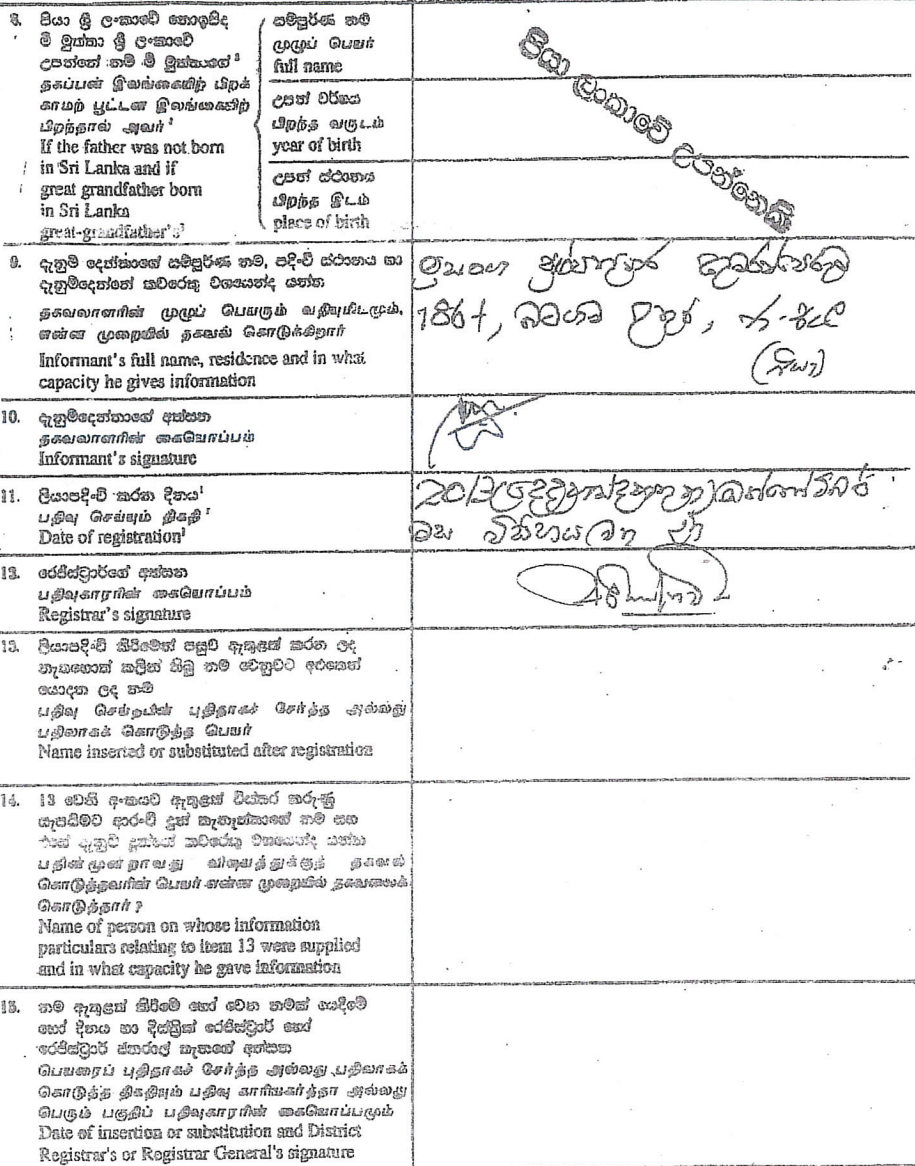 8. පියා ශ්‍රී ලංකාවේ නොඉපිද
මී මුත්තා ශ්‍රී ලංකාවේ
උපන්නේ නම් මී මුත්තාගේ
தகப்பன் இலங்கையிற் பிறக்
காமற் பூட்டன் இலங்கையிற்
பிறந்தால் அவர்
If the father was not born
in Sri Lanka and if
great grandfather born
in Sri Lanka
great-grandfather's
සම්පූර්ණ නම
முழுப் பெயர்
full name
උපන් වර්ෂය
பிறந்த வருடம்
year of birth
උපන් ස්ථානය
பிறந்த இடம்
place of birth
පියා ලංකාවේ උපන්නෙකි
9. දැනුම් දෙන්නාගේ සම්පූර්ණ නම, පදිංචි ස්ථානය හා
දැනුම්දෙන්නේ කවරෙකු වශයෙන්ද යන්න
தகவலாளரின் முழுப் பெயரும் வதிவிடமும்,
என்ன முறையில் தகவல் கொடுக்கிறார்
Informant's full name, residence and in what
capacity he gives information
186
(පියා)
10. දැනුම්දෙන්නාගේ අත්සන
தகவலாளரின் கையொப்பம்
Informant's signature
11. ලියාපදිංචි කරන දිනය¹
பதிவு செய்யும் திகதி¹
Date of registration¹
2013(දෙදහස් දහතුන)
මස විසිහය
12. රෙජිස්ට්‍රාර්ගේ අත්සන
பதிவுகாரரின் கையொப்பம்
Registrar's signature
13. ලියාපදිංචි කිරීමෙන් පසුව ඇතුළත් කරන ලද
නැතහොත් කලින් තිබූ නම වෙනුවට අළුතෙන්
යොදන ලද නම
பதிவு செய்தபின் புதிதாகச் சேர்த்த அல்லது
பதிலாகக் கொடுத்த பெயர்
Name inserted or substituted after registration
14. 13 වෙනි අංකයට ඇතුළත් විස්තර කරුණු
සැපයීමට ආරංචි දුන් තැනැත්තාගේ නම සහ
එසේ දැනුම් දුන්නේ කවරෙකු වශයෙන්ද යන්න
பதின்மூன்றாவது விடயத்துக்குத் தகவல்
கொடுத்தவரின் பெயர் என்ன முறையில் தகவலைக்
கொடுத்தார் ?
Name of person on whose information
particulars relating to item 13 were supplied
and in what capacity he gave information
15. නම ඇතුළත් කිරීමේ හෝ වෙන නමක් යෙදීමේ
හෝ දිනය හා දිස්ත්‍රික් රෙජිස්ට්‍රාර් හෝ
රෙජිස්ට්‍රාර් ජනරාල් තැනගේ අත්සන
பெயரைப் புதிதாகச் சேர்த்த அல்லது பதிலாகக்
கொடுத்த திகதியும் பதிவு காரியகர்த்தா அல்லது
பெரும் பகுதிப் பதிவுகாரரின் கையொப்பமும்
Date of insertion or substitution and District
Registrar's or Registrar General's signature